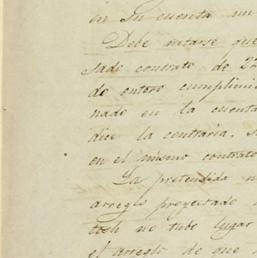 in su cuenta un
Debe notarse que
sado contrato de 22
de entero cumplimie
nado en la cuenta
dice la contraria, s
en el mismo contrato
La pretendida n
arreglo proyectado
tish no tubo lugar
el arreglo de que